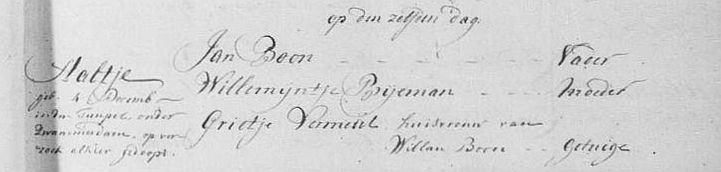 op den zelfden dag.
Aaltje
geb. 4 Decemb
in den Tempel onder
Zwammerdam, op ver
zoek alhier gedoopt.
Jan Boon - - - - Vader
Willemyntje Ryeman - - Moeder
Grietje Vermeul huisvrouw van
Willam Boon - - Getuige.